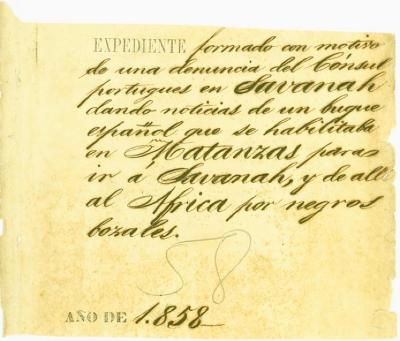 EXPEDIENTE formado con motivo
de una denuncia del Cónsul
portugues en Savanah
dando noticias de un buque
español que se habilitaba
en Matanzas para
ir á Savanah, y de alli
al Africa por negros
bozales.
58
AÑO DE 1.858